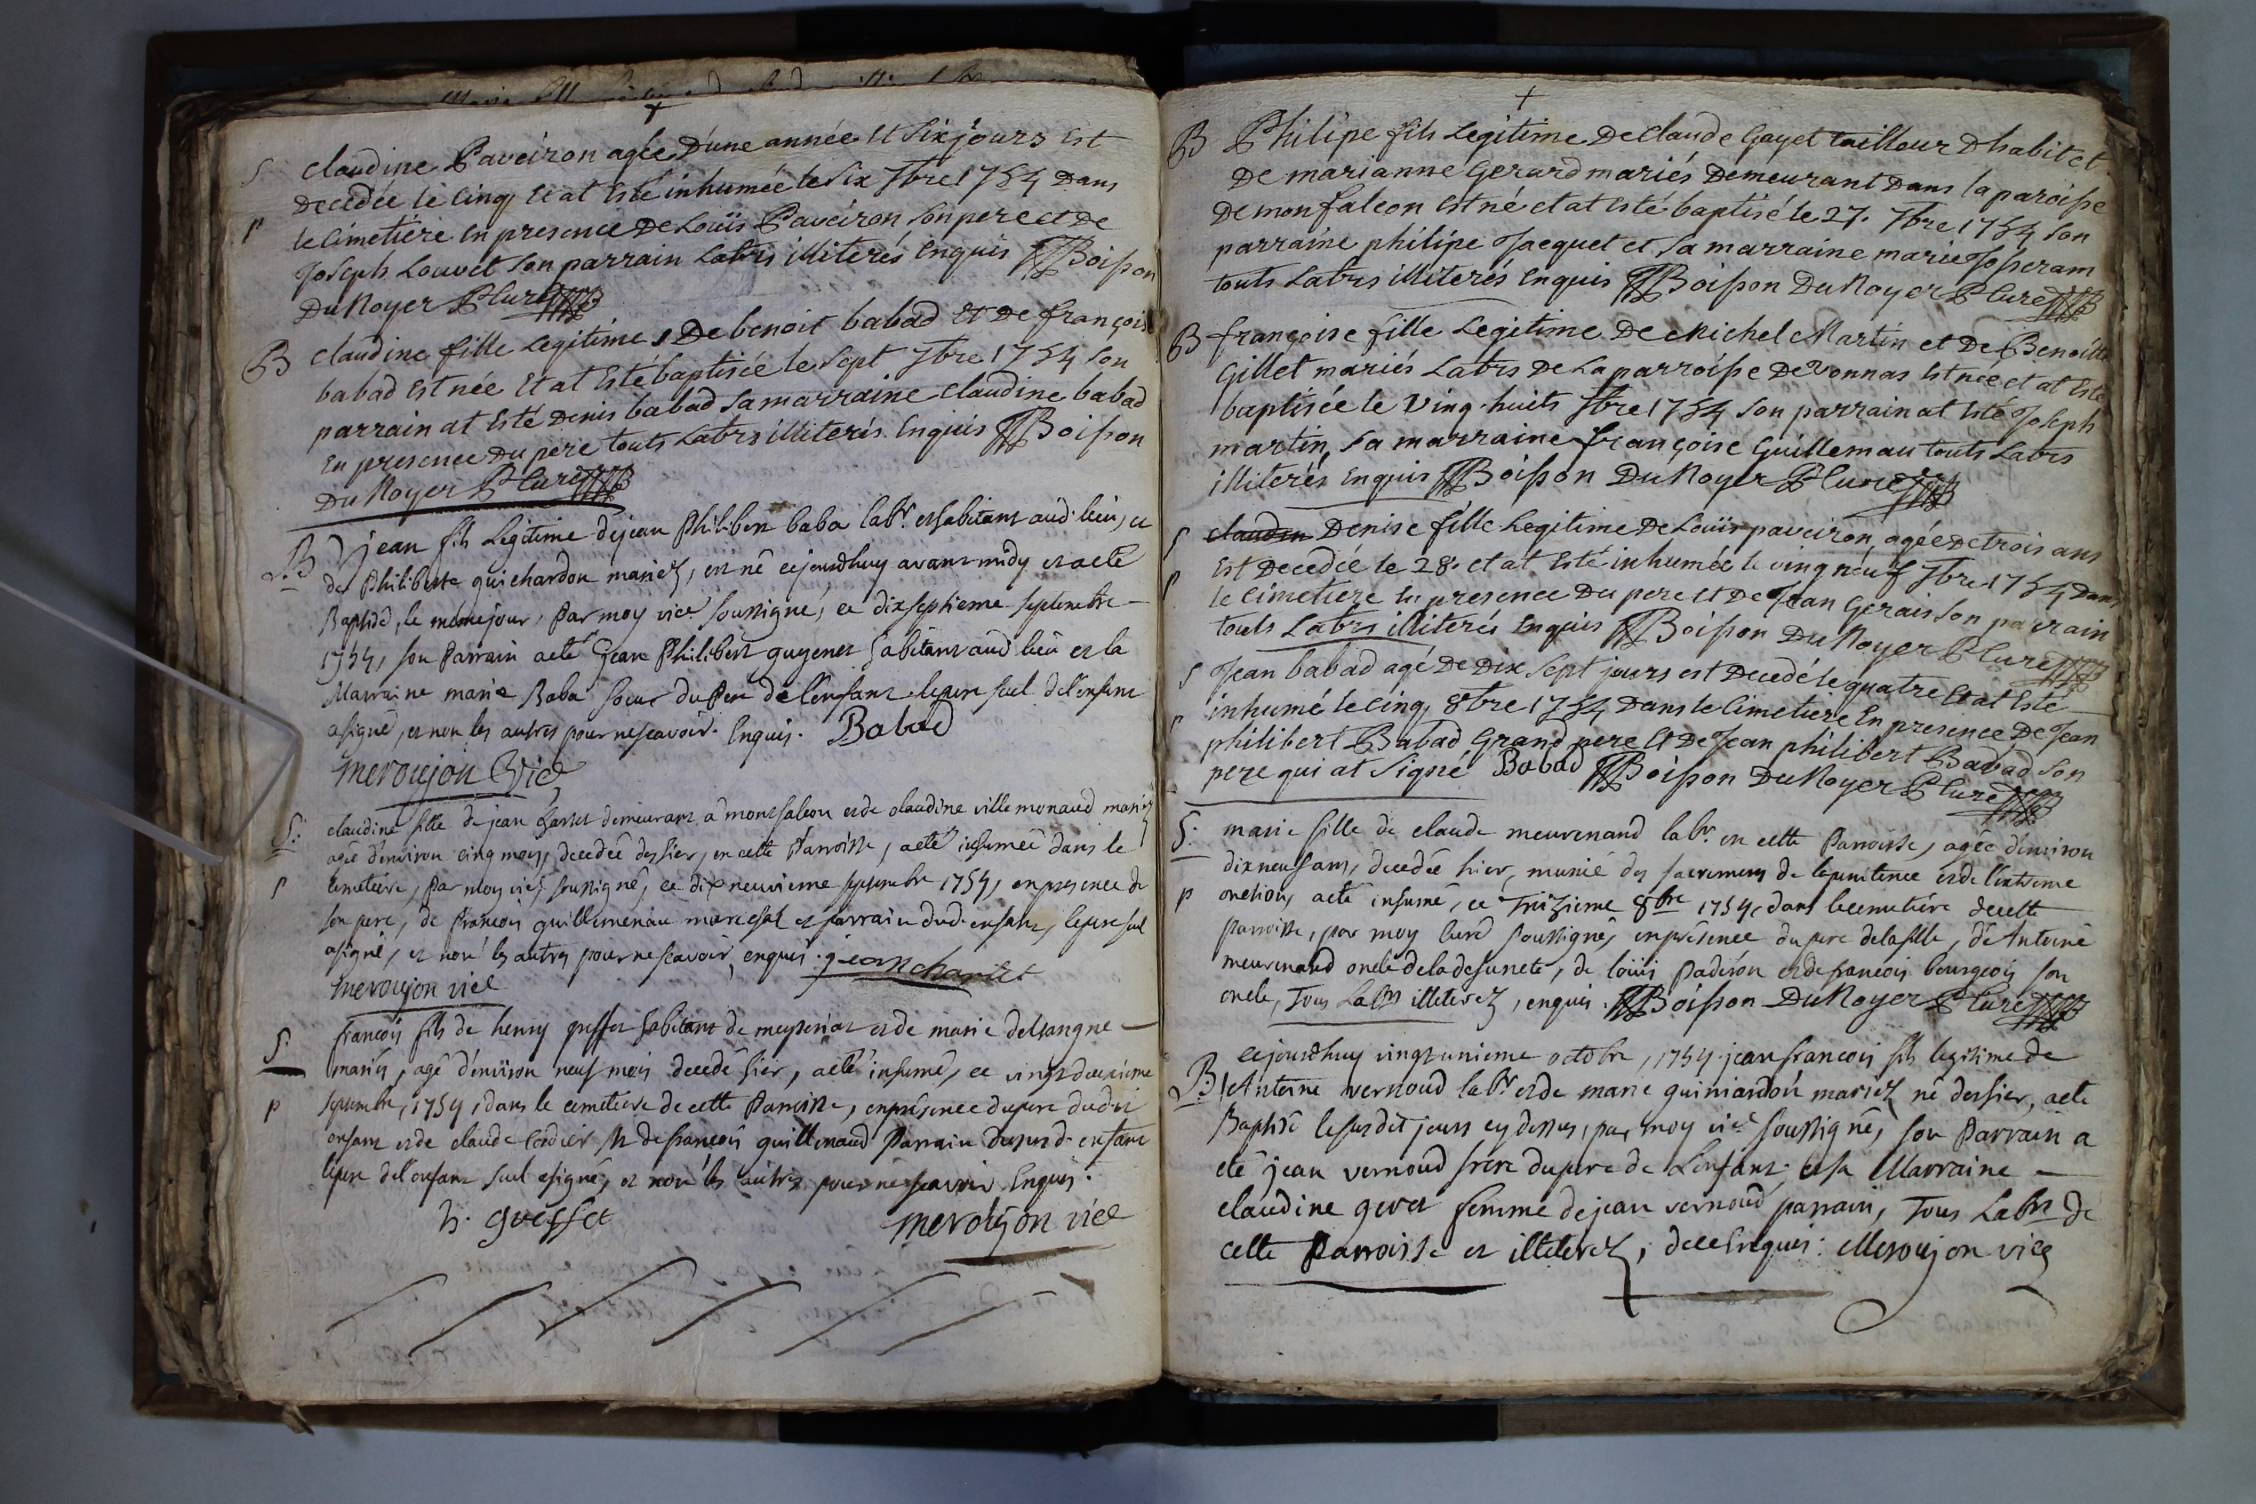 S Claudine Paveiron agée D'une année Et Six jours Est
Decedée le Cinq Et at Esté inhumée le Six 7bre 1754 Dans
P le Cimetiére En presence De Loüis Paveiron Son pere et De
Joseph Louvet Son parrain Labrs illiterés Enquis Boisson
Du Noyer P Curé
B Claudine fille Legitime De benoit babad Et De françoise
babad Est née Et at Esté baptisée le Sept 7bre 1754 Son
parrain at Esté Denis babad Sa marraine Claudine babad
En presence Du pere touts Labrs illiterés Enquis Boisson
Du Noyer P Curé
B jean fils Legitime de jean Philibert baba labr. et habitant audt. lieu, et
de Philiberte guichardon mariez, est né cejourdhuy avant midy et a eté
Baptisé, le même jour, Par moy vice. soussigné, ce dixseptieme septembre
1754, son Parrain a eté jean Philibert guyenet habitant aud lieu et la
Marraine marie Baba soeur du Pere de l'enfant le pere seul de l'enfant
a signé, et non les autres pour ne scavoir. Enquis. Babad
meroujon vice
S. claudine fille de jean demeurant a montfalcon et de claudine ville monaud mariez
agée d'environ cinq mois, decedée des hier, en cette Parroisse, a eté inhumée dans le
P cimetiere, Par moy vice soussigné, ce dix neuvieme septembre 1754, en presence de
son pere, de François guillemenau marechal et parrain dud. enfant, le pere seul
a signé, et non les autres pour ne scavoir, enquis. jean
meroujon vice
S françois fils de henry greffet habitant de meyseriat et de marie
mariés, agé d'environ neuf mois decedé hier, a eté inhumé, ce vingt deuxieme
P septembre, 1754, dans le cemetiere de cette Parroisse, en présence du pere dudit
enfant et de claude Cordier fils de françois guillemaud Parrain du susd. enfant
le pere de l'enfant seul a signé, et non les autres pour ne scavoir Enquis.
h. greffet meroujon vice
B Philipe fils Legitime De Claude Gayet tailleur D'habit et
De marianne Gerard mariés Demeurant Dans la paroisse
De monfalcon Est né et at Esté baptisé le 27. 7bre 1754 Son
parraine philipe Jacquet et Sa marraine marie Josseram
touts Labrs illiterés Enquis Boisson Du Noyer P Curé
B françoise fille Legitime De Michel Martin et De Benoitte
Gillet mariés Labrs De La parroisse De Vonnas Est née et at Esté
baptisée le Ving-huits 7bre 1754 Son parrain at Esté Joseph
martin, Sa marraine françoise Guillemau touts Labrs
illiterés Enquis Boisson Du Noyer P Curé
S Claudin Denise fille Legitime De Loüis paveiron, agée De trois ans
Est Decedée le 28. et at Esté inhumée le ving neuf 7bre 1754 Dans
P le Cimetiere En presence Du pere Et De Jean Gerais Son parrain
touts Labrs illiterés Enquis Boisson Du Noyer P Curé
S Jean babad agé De Dix Sept jours est Decedé le quatre Et at Esté
inhumé le Cinq 8tre 1754 Dans le Cimetiere En presence De Jean
P philibert Babad Grand pere Et De Jean philibert Babad Son
pere qui at Signé Babad Boisson Du Noyer P Curé
S. marie fille de claude meurenand labr. en cette Parroisse, agée d'environ
dix neuf ans, decedée hier, munie des sacrements de la penitence et de l'extreme
P onction, a eté inhumé, ce Treizieme 8bre 1754, dans le cemetiére de cette
Parroisse, par moy Curé soussigné, en présence du pere de la fille, d'Antoine
meurenand oncle de la defuncte, de loüis Paveiron et de françois bourgeois son
oncle, Tous Labrs illeterez, enquis. Boisson Du Noyer P Curé
B cejourdhuy vingt unieme octobre, 1754. jean francois fils legitime de
Antoine vernoud labr et de marie mariez né des hier, a eté
Baptisé le susdit jours cy dessus, par moy vicé soussigné, son Parrain a
eté jean vernoud frere du pere de L'enfant, et sa Marraine
claudine femme de jean vernoud parrain, Tous Labrs de
cette Parroisse et illeterez, de ce Enquis. Meroujon vice